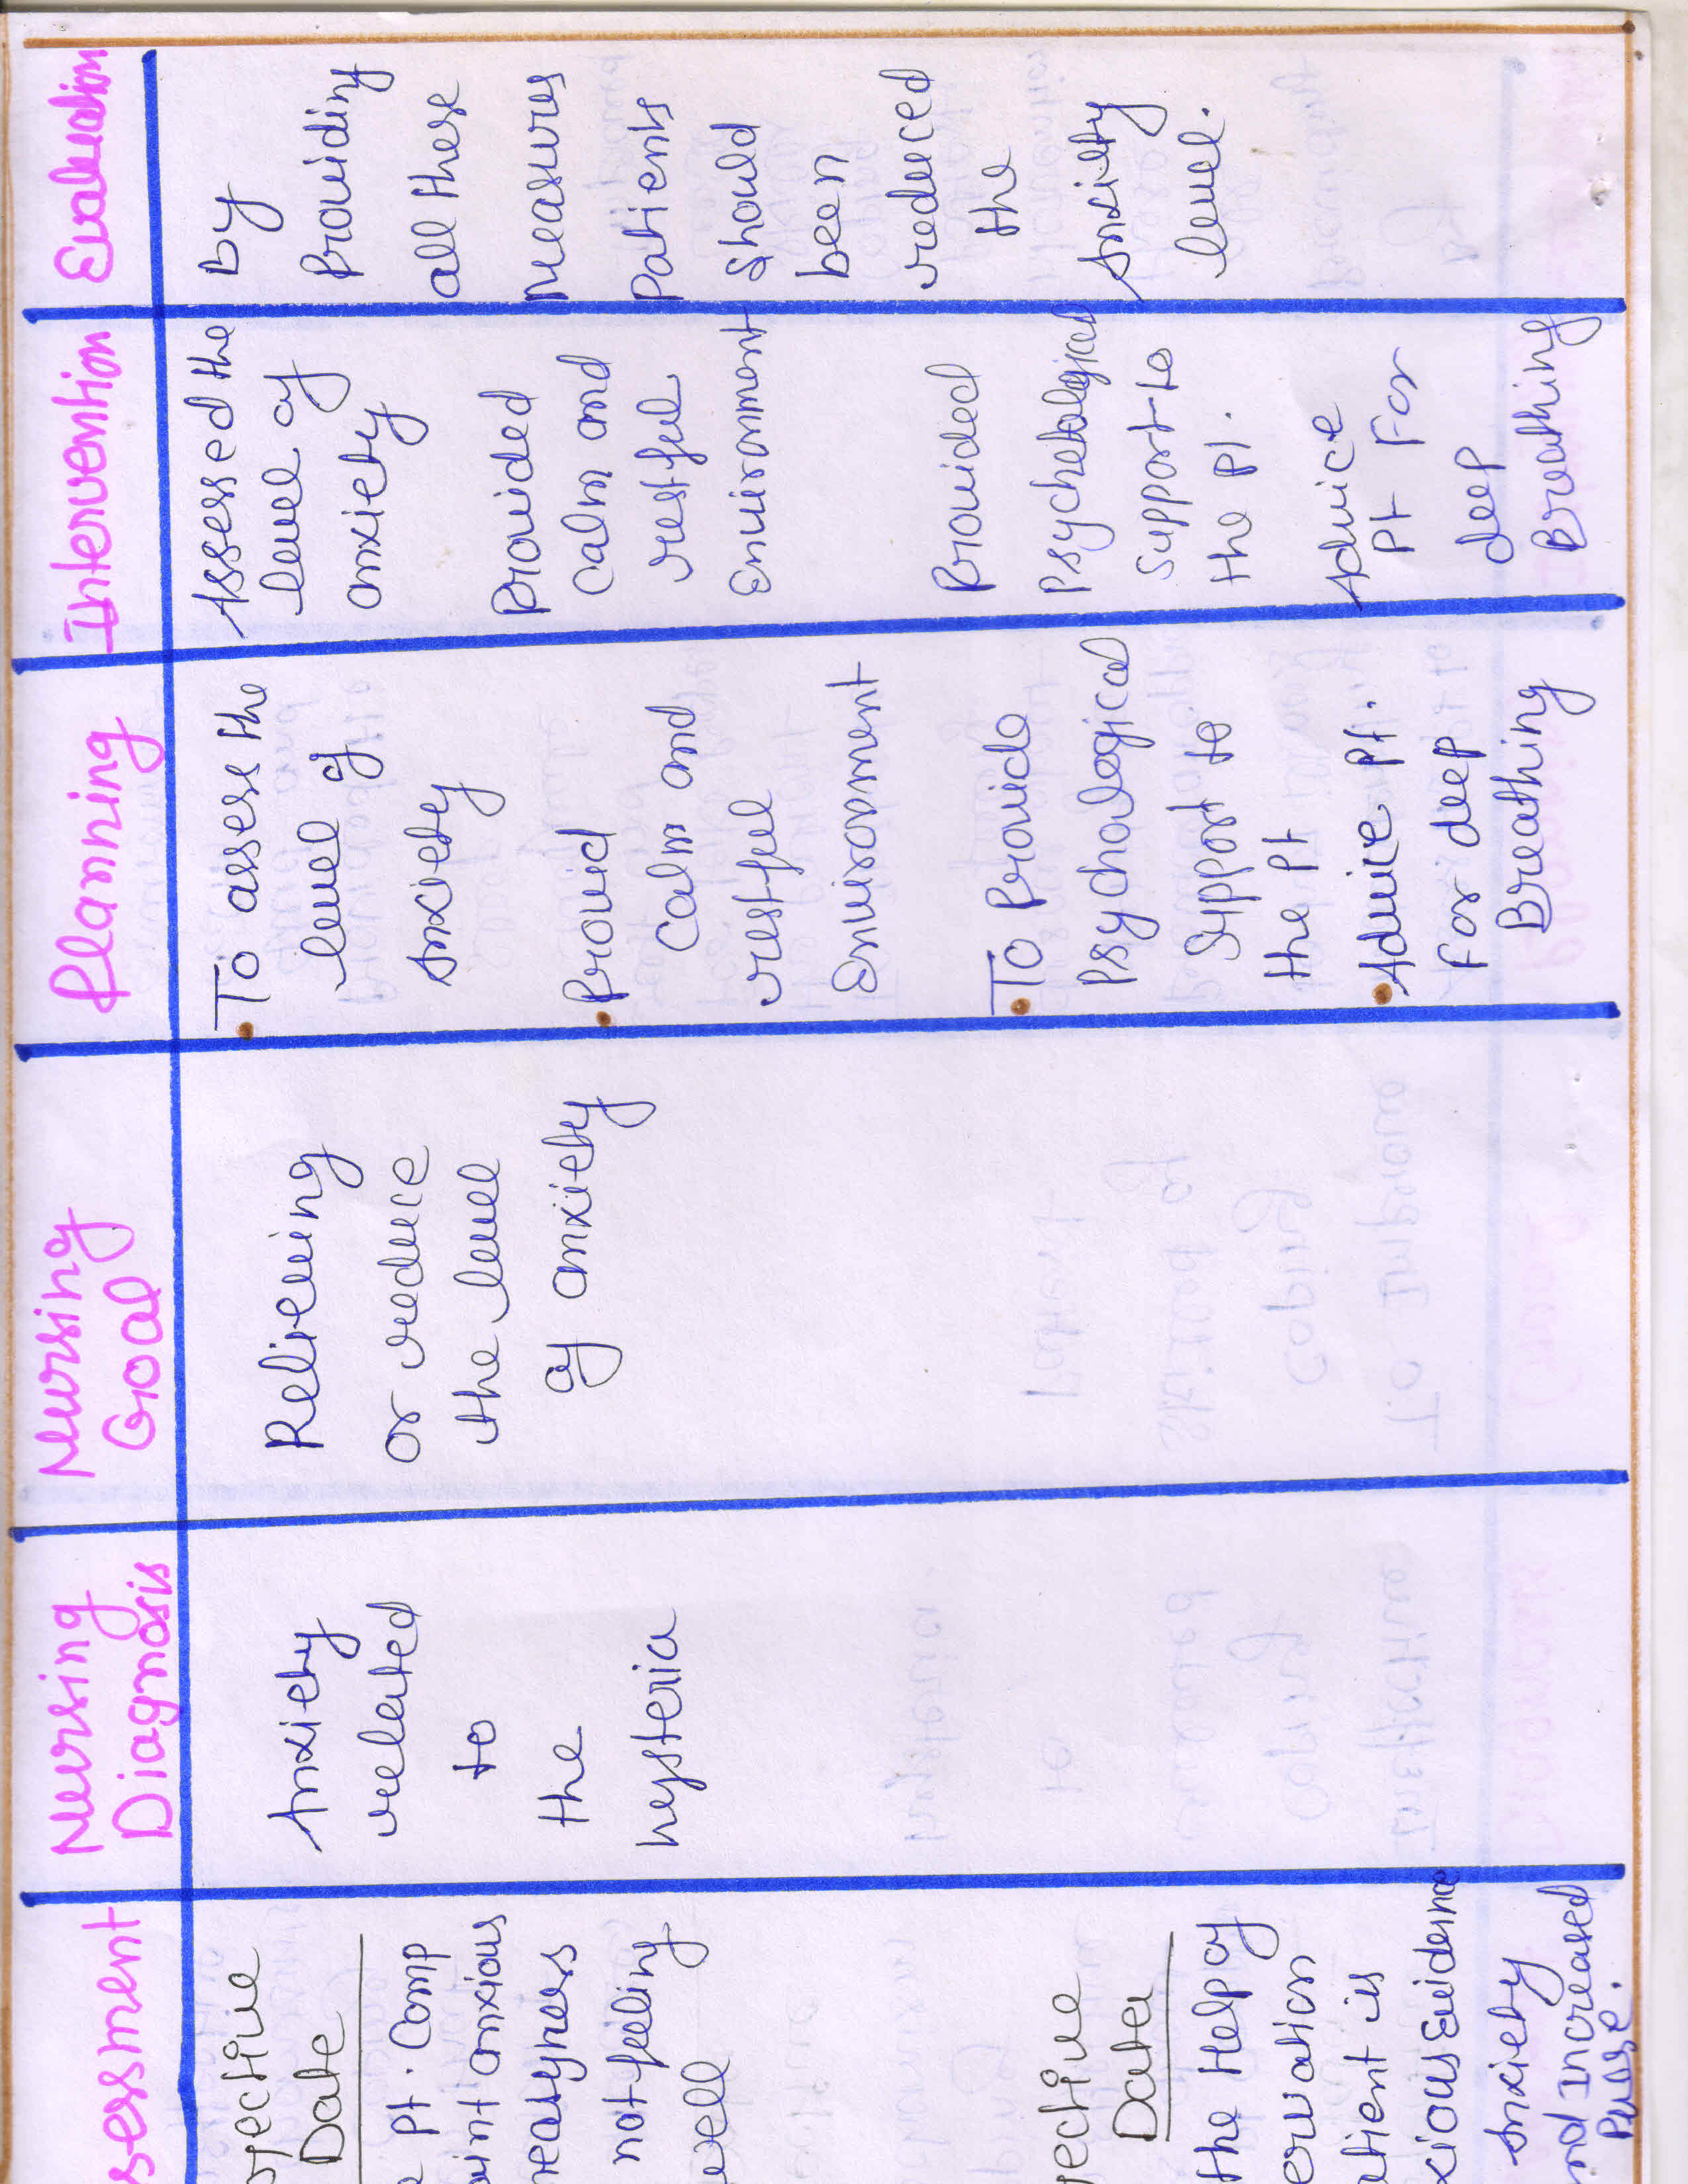 sessment
Nursing
Diagnosis
Nursing
Goal
Planning
Intervention
Evaluation
jective
Date
Pt. Comp
aint anxious
neasyness
not feeling
well
jective
Date
the Help of
ervation
atient is
xious Evidence
Anxiety
nd increased
Pulse.
Anxiety
related
to
the
hysteria
Relieving
or reduce
the level
of anxiety
• To assess the
level of
Anxiety
• Provid
Calm and
restful
Enviroment
• To Provide
Psychological
Support to
the Pt
• Advice Pt.
For deep
Breathing
Assessed the
level of
anxiety
Provided
Calm and
restful
Enviroment
Provided
Psychological
Support to
the Pt.
Advice
Pt For
deep
Breathing
By
Providing
all these
Measures
Patients
Should
been
reduced
the
Anxiety
level.